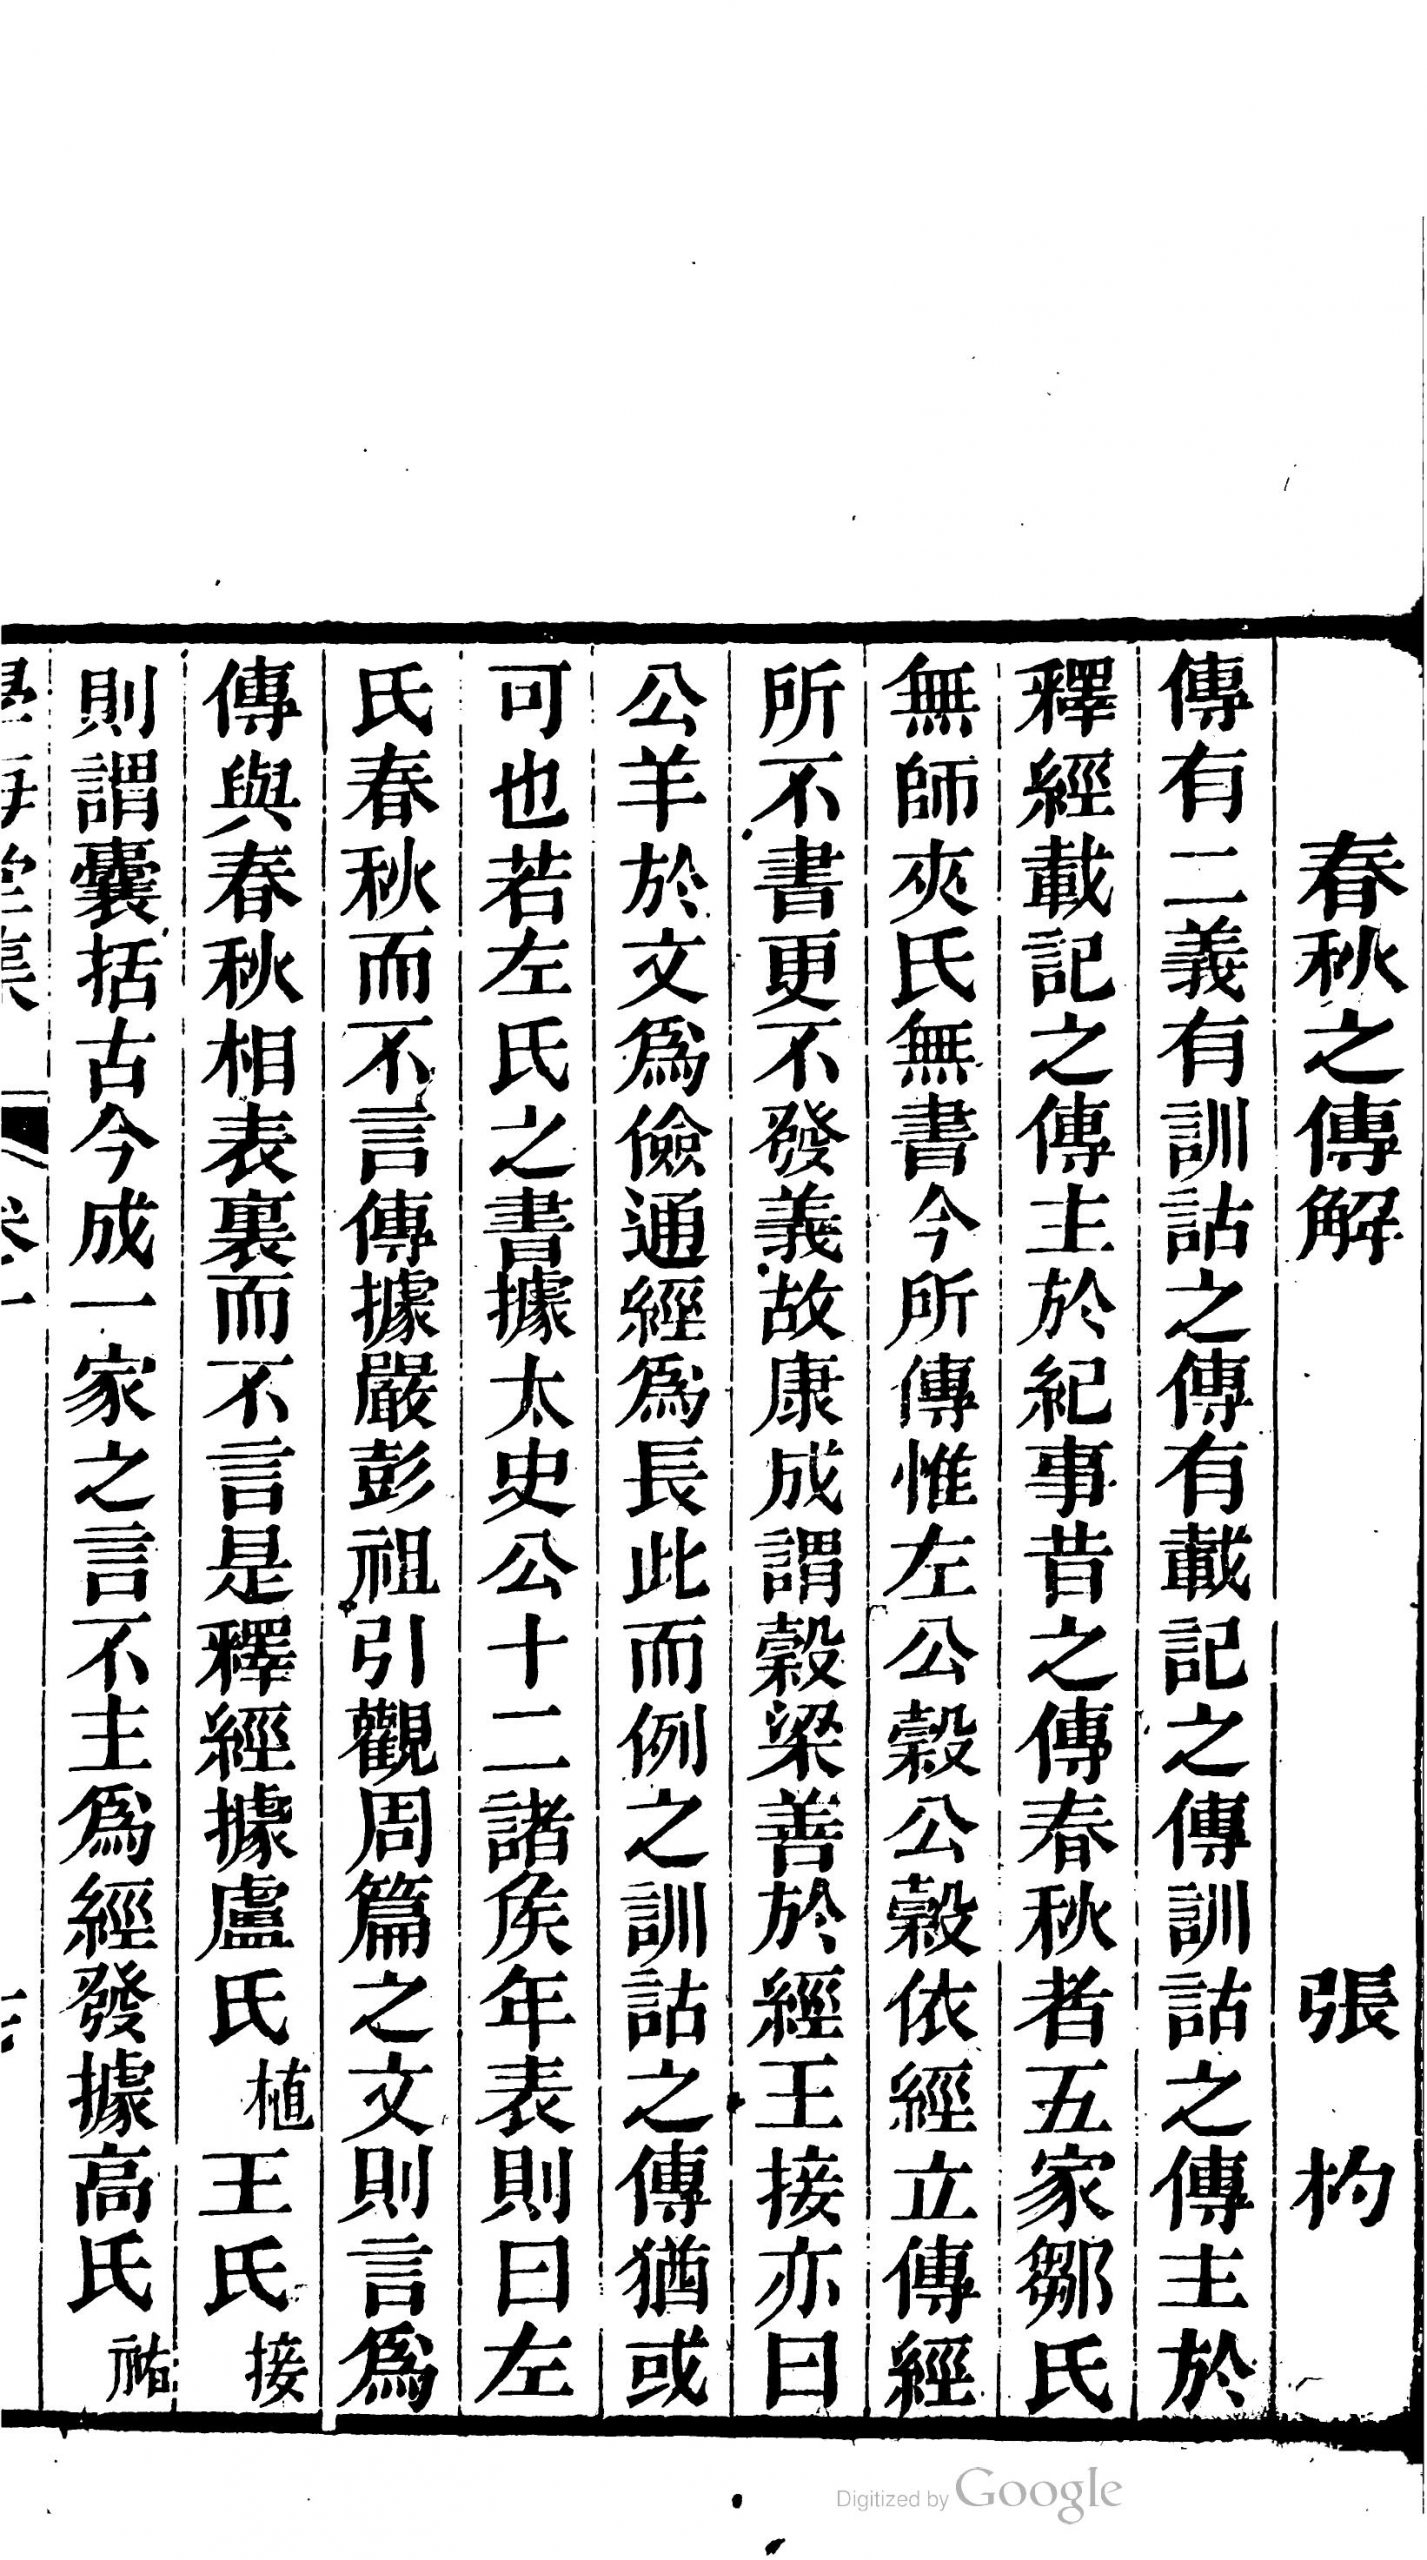 春秋之傳解　張　杓
傳有二義有訓詁之傳有載記之傳訓詁之傳主於
釋經載記之傳主於紀事昔之傳春秋者五家鄒氏
無師夾氏無書今所傳惟左公穀公穀依經立傳經
所不書更不發義故康成謂穀梁善於經王接亦曰
公羊於文爲儉通經爲長此而例之訓詁之傳猶或
可也若左氏之書據太史公十二諸侯年表則曰左
氏春秋而不言傳據嚴彭祖引觀周篇之文則言爲
傳與春秋相表裏而不言是釋經據盧氏植王氏接
則謂囊括古今成一家之言不主爲經發據高氏祐
Digitized by Google